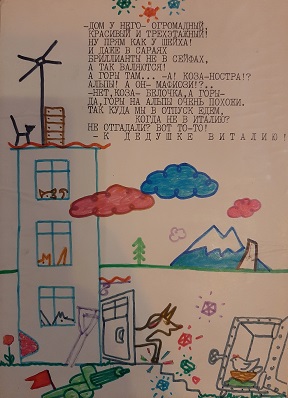 -ДОМ У НЕГО- ОГРОМАДНЫЙ,
КРАСИВЫЙ И ТРЕХЭТАЖНЫЙ!
НУ ПРЯМ КАК У ШЕЙХА!
И ДАЖЕ В САРАЯХ
БРИЛЛИАНТЫ НЕ В СЕЙФАХ,
А ТАК ВАЛЯЮТСЯ!
А ГОРЫ ТАМ... -А! КОЗА-НОСТРА!?
АЛЬПЫ! А ОН- МАФИОЗИ!?..
-НЕТ, КОЗА- БЕЛОЧКА, А ГОРЫ-
ДА, ГОРЫ НА АЛЬПЫ ОЧЕНЬ ПОХОЖИ.
ТАК КУДА МЫ В ОТПУСК ЕДЕМ,
КОГДА НЕ В ИТАЛИЮ?
НЕ ОТГАДАЛИ? ВОТ ТО-ТО!
-К ДЕДУШКЕ ВИТАЛИЮ!